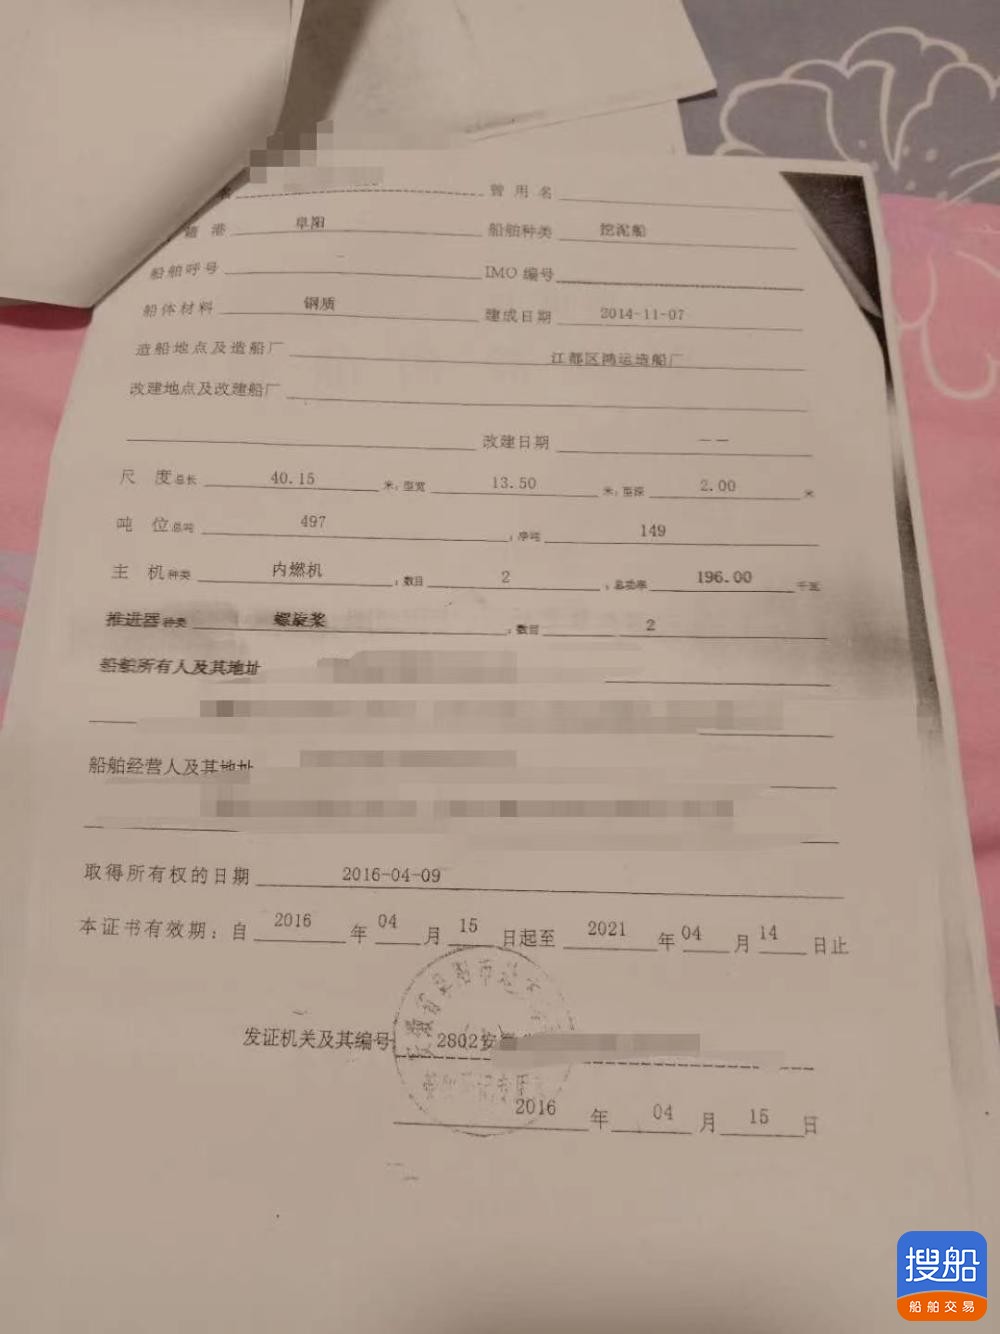 名 曾用名
籍港 阜阳 船舶种类 挖泥船
船舶呼号 IMO 编号
船体材料 钢质 建成日期 2014-11-07
造船地点及造船厂 江都区鸿运造船厂
改建地点及改建船厂
改建日期 — —
尺度 总长 40.15 米，型宽 13.50 米，型深 2.00 米
吨位 总吨 497 ，净吨 149
主机 种类 内燃机 ，数目 2 ，总功率 196.00 千瓦
推进器 种类 螺旋桨 ，数目 2
船舶所有人及其地址
船舶经营人及其地址
取得所有权的日期 2016-04-09
本证书有效期：自 2016 年 04 月 15 日起至 2021 年 04 月 14 日止
发证机关及其编号 2802安
2016 年 04 月 15 日
搜船
船舶交易